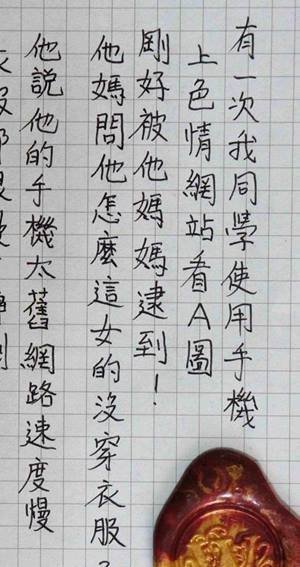 有一次我同學使用手機
上色情網站看A圖
剛好被他媽媽逮到！
他媽問他怎麼這女的沒穿衣服？
他說他的手機太舊網路速度慢